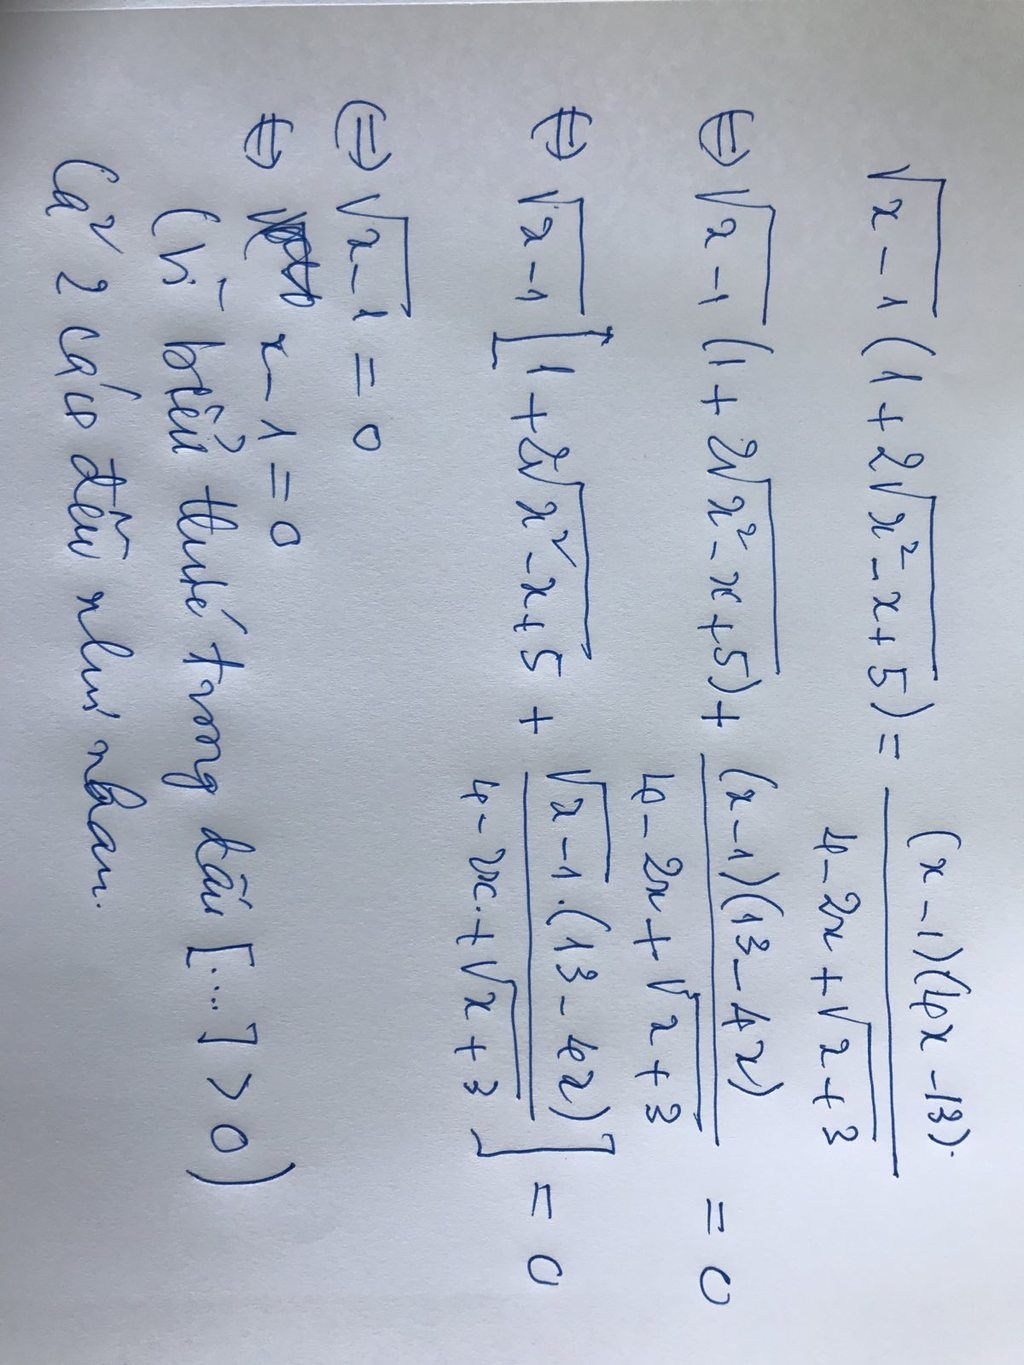 √(x-1) (1 + 2√(x² - x + 5)) = (x-1)(4x-13) / (4 - 2x + √(x+3)).
⇔ √(x-1) (1 + 2√(x² - x + 5)) + (x-1)(13-4x) / (4 - 2x + √(x+3)) = 0
⇔ √(x-1) [1 + 2√(x² - x + 5) + √(x-1).(13-4x) / (4 - 2x + √(x+3))] = 0
⇔ √(x-1) = 0
⇔ x - 1 = 0
(Vì biểu thức trong dấu [...] > 0)
Cả 2 cách đều như nhau.